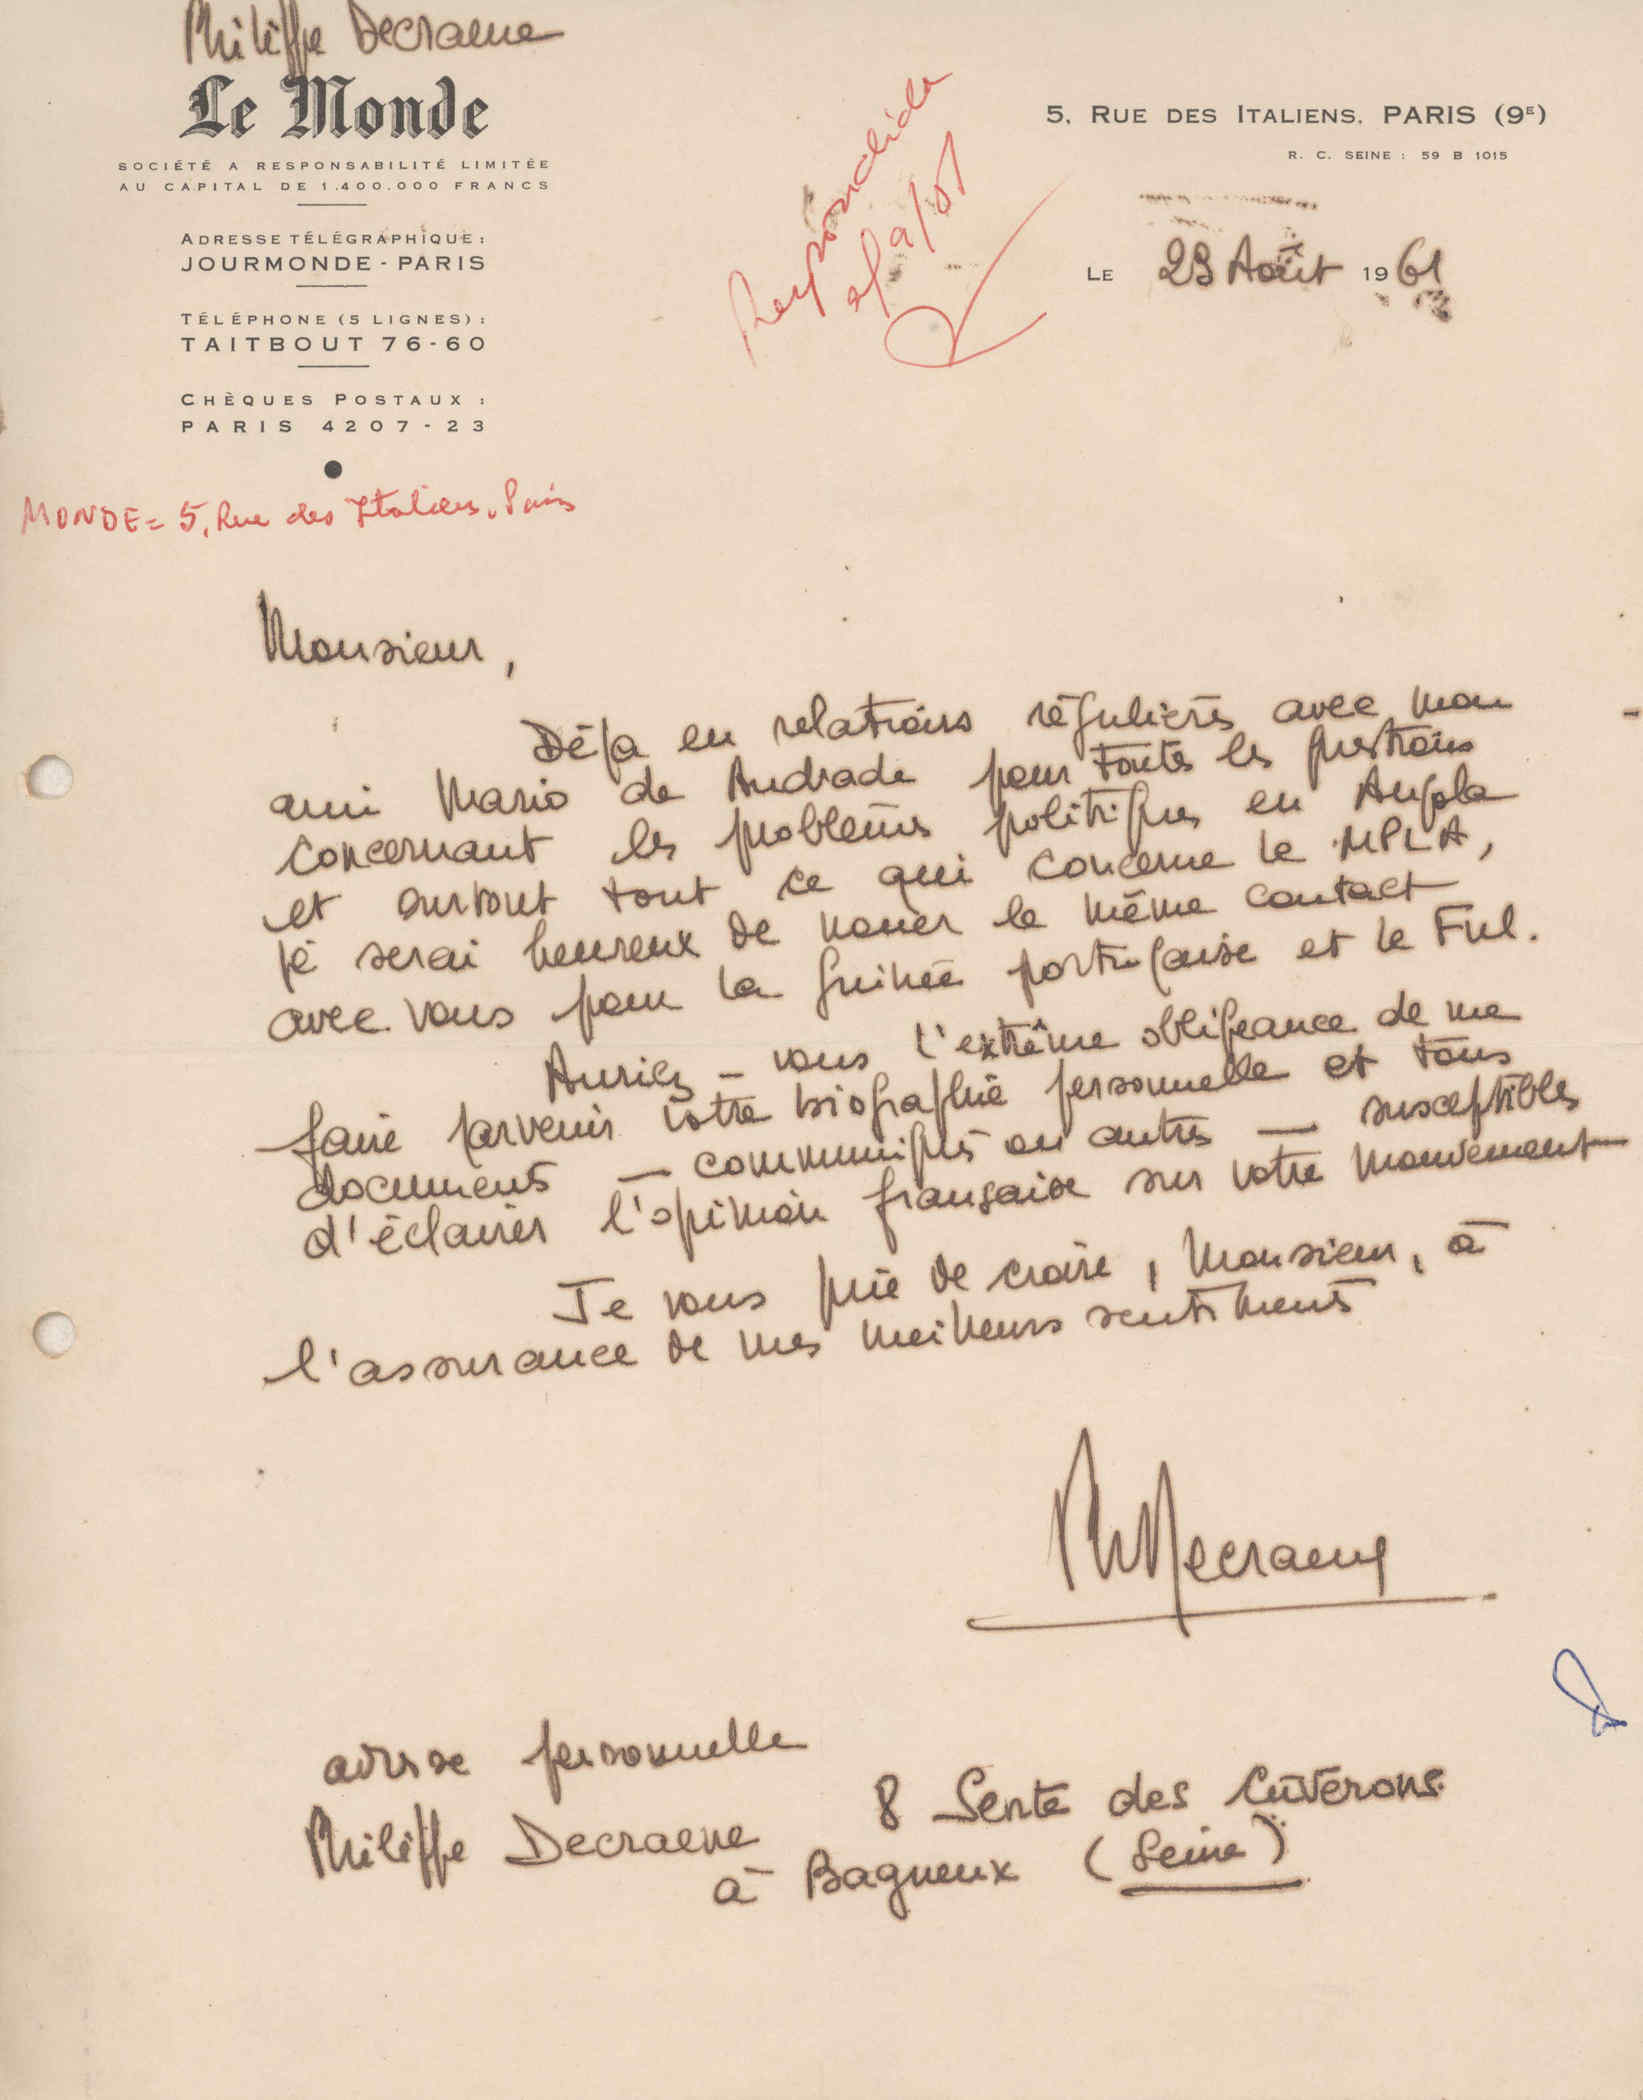 Philippe Decraene
Le Monde
SOCIÉTÉ A RESPONSABILITÉ LIMITÉE
AU CAPITAL DE 1.400.000 FRANCS
ADRESSE TÉLÉGRAPHIQUE :
JOURMONDE - PARIS
TÉLÉPHONE (5 LIGNES) :
TAITBOUT 76-60
CHÈQUES POSTAUX :
PARIS 4207-23
MONDE = 5, Rue des Italiens, Paris
Respondida
5, RUE DES ITALIENS. PARIS (9E)
R. C. SEINE : 59 B 1015
LE 29 Août 1961
Monsieur,
Déjà en relations régulières avec mon
ami Mario de Andrade pour toutes les questions
concernant les problèmes politiques en Angola
et surtout tout ce qui concerne le MPLA,
je serai heureux de nouer le même contact
avec vous pour la Guinée portugaise et le Ful.
Auriez-vous l'extrême obligeance de me
faire parvenir votre biographie personnelle et tous
documents — communiqués ou autres — susceptibles
d'éclairer l'opinion française sur votre mouvement
Je vous prie de croire, Monsieur, à
l'assurance de mes meilleurs sentiments
Ph Decraene
adresse personnelle
Philippe Decraene 8 Sente des Cuverons
à Bagneux (Seine)